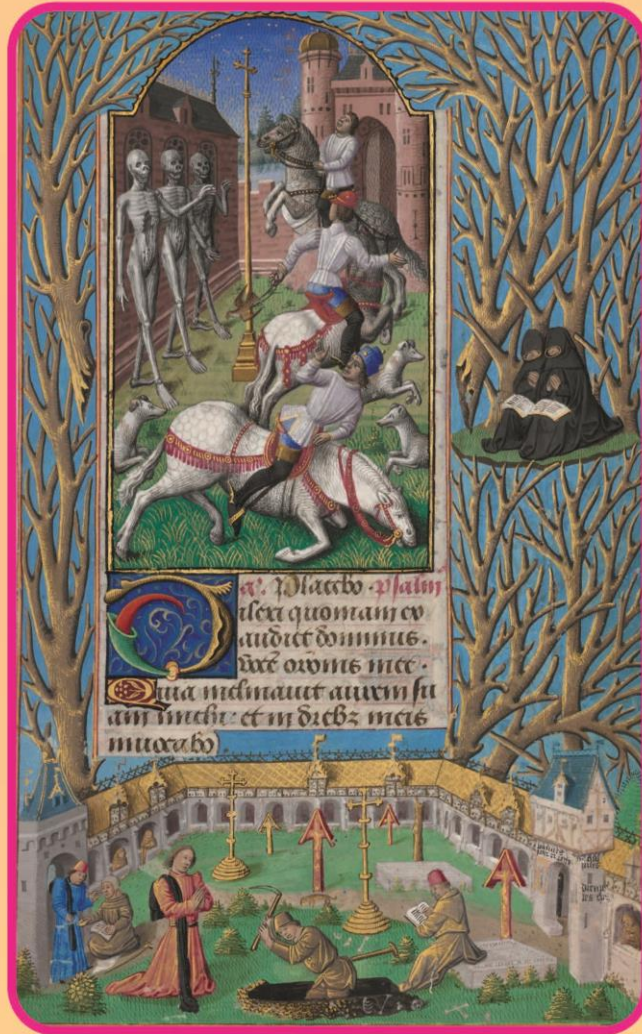 a. Placebo. Psalm
ilexi quoniam ex
audiet dominus.
vocē orōnis mee.
Quia inclinauit aurem su
am michi: et in diebz meis
inuocabo